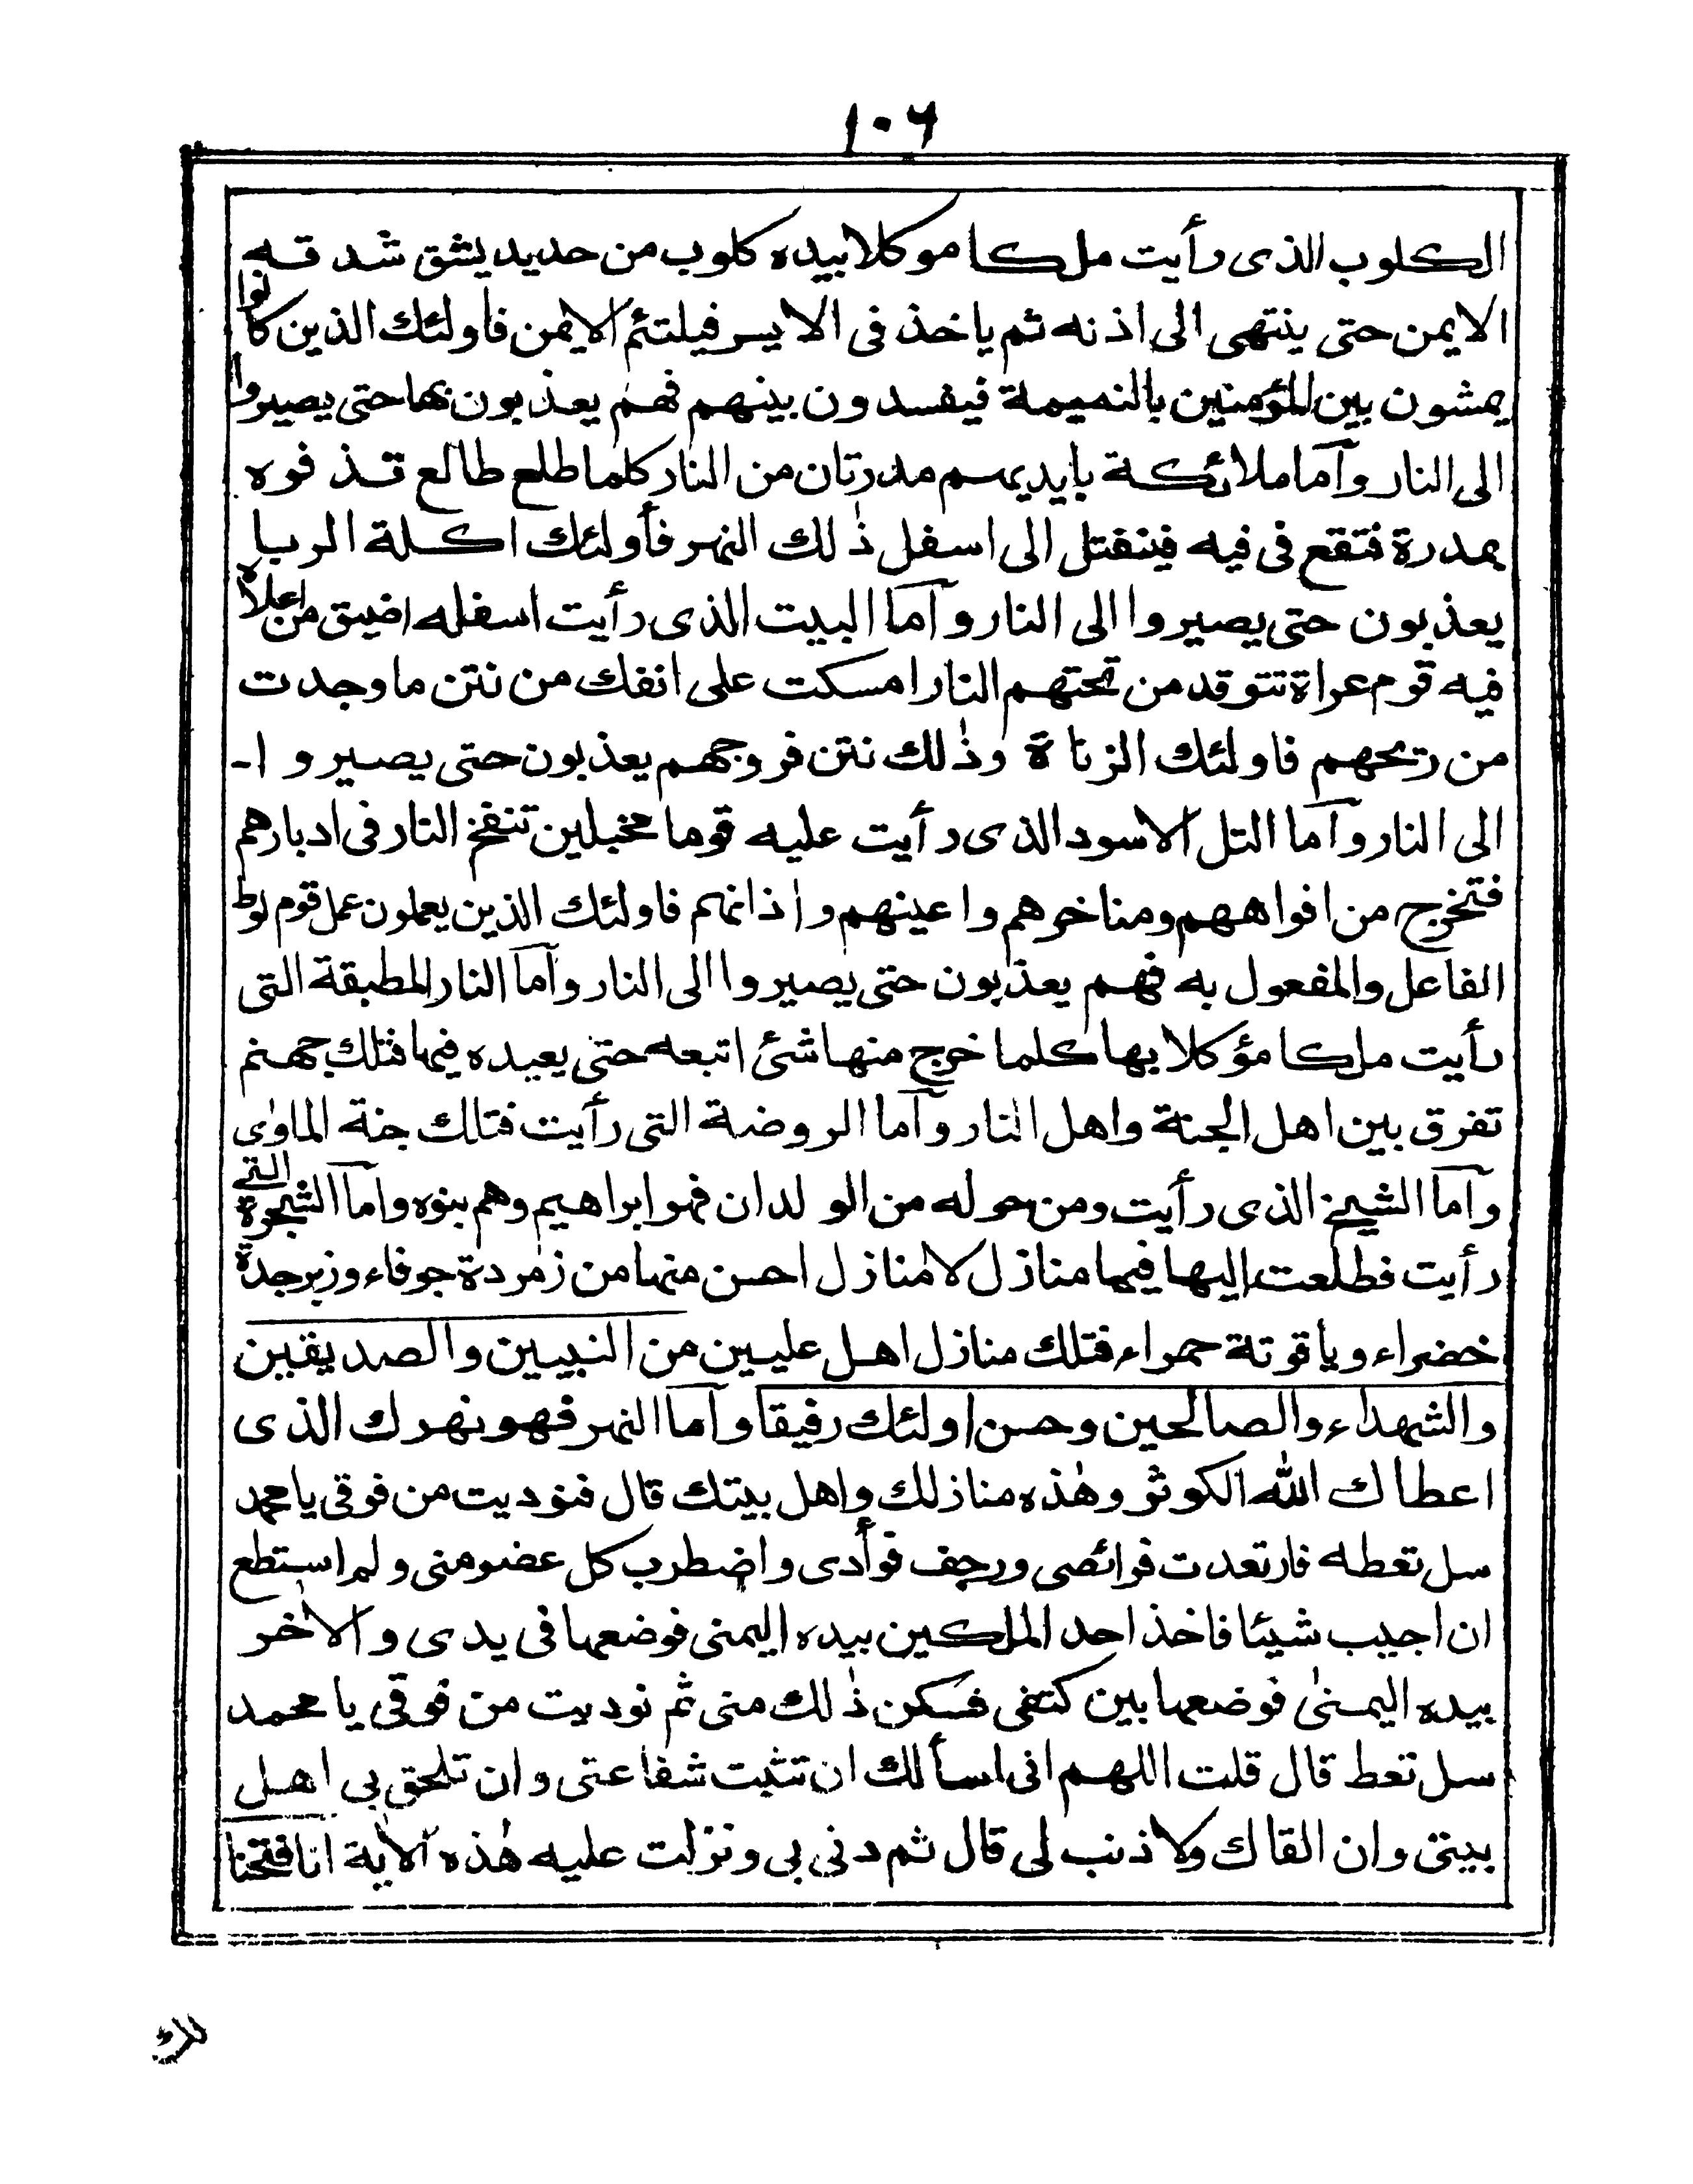 ١٠٦
الكلوب الذى رأيت ملكا موكلا بيده كلوب من حديد يشق شدقه
الايمن حتى ينتهى الى اذنه ثم ياخذ فى الايسر فيلتئم الايمن فاولئك الذين كانوا
يمشون بين المؤمنين بالنميمة فيفسدون بينهم فهم يعذبون بها حتى يصيروا
الى النار وآما ملائكة بايديهم مدرتان من النار كلما طلع طالع قذفوه
بمدرة فتقع فى فيه فينفتل الى اسفل ذٰلك النهر فأولئك اكلة الربا
يعذبون حتى يصيروا الى النار وآما البيت الذى رأيت اسفله اضيق من اعلاه
فيه قوم عراة تتوقد من تحتهم النار امسكت على انفك من نتن ما وجدت
من ريحهم فاولئك الزناة وذٰلك نتن فروجهم يعذبون حتى يصيروا -
الى النار وآما التل الاسود الذى رأيت عليه قوما مخبلين تنفخ النار فى ادبارهم
فتخرج من افواههم ومناخرهم واعينهم واٰذانهم فاولئك الذين يعملون عمل قوم لوط
الفاعل والمفعول به فهم يعذبون حتى يصيروا الى النار وآما النار المطبقة التى
رأيت ملكا مؤكلا بها كلما خرج منها شئ اتبعه حتى يعيده فيها فتلك جهنم
تفرق بين اهل الجنة واهل النار وآما الروضة التى رأيت فتلك جنة الماوٰى
وآما الشيخ الذى رأيت ومن حوله من الولدان فهو ابراهيم وهم بنوه وامآ الشجرة التى
رأيت فطلعت اليها فيها منازل لا منازل احسن منها من زمردة جوفاء وزبرجدة
خضراء وياقوتة حمراء فتلك منازل اهل عليين من النبيين والصديقين
والشهداء والصالحين وحسن اولئك رفيقا وآما النهر فهو نهرك الذى
اعطاك الله الكوثر وهٰذه منازلك واهل بيتك قال فنوديت من فوقى يا محمد
سل تعطه فارتعدت فرائصى ورجف فوأدى واضطرب كل عضو منى ولم استطع
ان اجيب شيئا فاخذ احد الملكين بيده اليمنى فوضعها فى يدى والاٰخر
بيده اليمنىٰ فوضعها بين كتفى فسكن ذٰلك منى ثم نوديت من فوقى يا محمد
سل تعط قال قلت اللهم انى اسألك ان تثبت شفاعتى وان تلحق بى اهل
بيتى وان القاك ولا ذنب لى قال ثم دنى بى ونزلت عليه هٰذه الاٰية انا فتحنا
لك